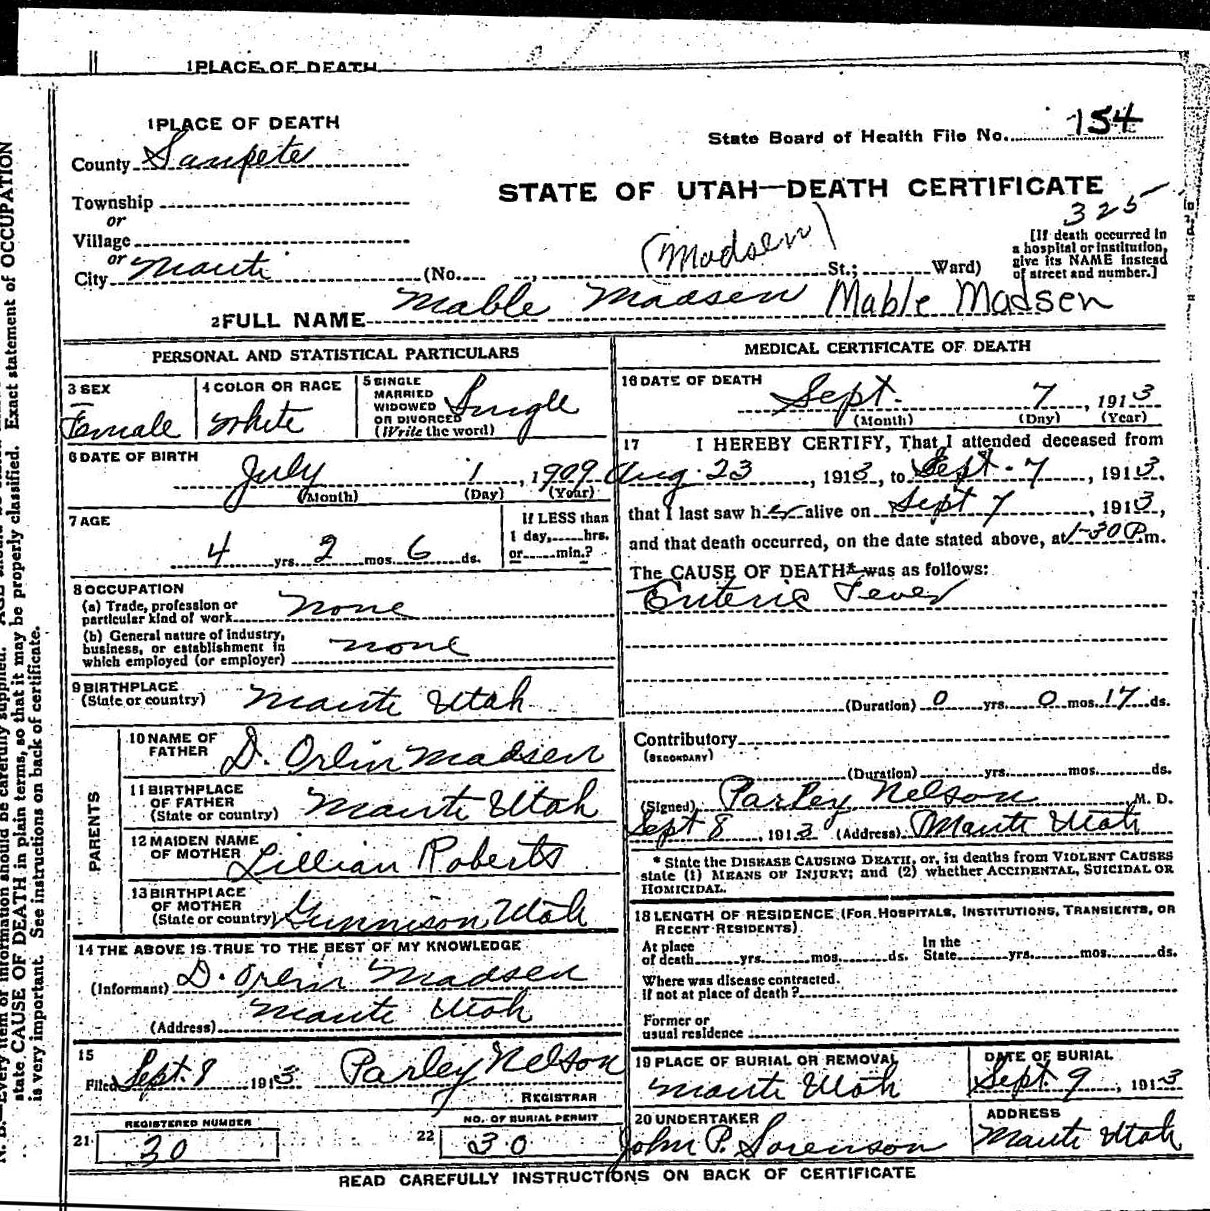 1 PLACE OF DEATH
1 PLACE OF DEATH
State Board of Health File No. 154
County Sanpete
STATE OF UTAH—DEATH CERTIFICATE
325
Township
or
Village
or
City Manti (No. , (Madsen) St.; Ward)
[If death occurred in
a hospital or institution,
give its NAME instead
of street and number.]
2 FULL NAME Mable Madsen Mable Madsen
PERSONAL AND STATISTICAL PARTICULARS
3 SEX
Female
4 COLOR OR RACE
White
5 SINGLE
MARRIED
WIDOWED
OR DIVORCED
(Write the word)
Single
6 DATE OF BIRTH
July 1, 1909
(Month) (Day) (Year)
7 AGE
4 yrs. 2 mos. 6 ds.
If LESS than
1 day, hrs.
or min.?
8 OCCUPATION
(a) Trade, profession or
particular kind of work none
(b) General nature of industry,
business, or establishment in
which employed (or employer) none
9 BIRTHPLACE
(State or country) Manti Utah
PARENTS
10 NAME OF
FATHER D. Orlin Madsen
11 BIRTHPLACE
OF FATHER
(State or country) Manti Utah
12 MAIDEN NAME
OF MOTHER Lillian Roberts
13 BIRTHPLACE
OF MOTHER
(State or country) Gunnison Utah
14 THE ABOVE IS TRUE TO THE BEST OF MY KNOWLEDGE
(Informant) D. Orlin Madsen
(Address) Manti Utah
15
Filed Sept. 8 1913 Parley Nelson
REGISTRAR
REGISTERED NUMBER
21 30
NO. OF BURIAL PERMIT
22 30
MEDICAL CERTIFICATE OF DEATH
16 DATE OF DEATH
Sept. 7, 1913
(Month) (Day) (Year)
17 I HEREBY CERTIFY, That I attended deceased from
Aug. 23, 1913, to Sept. 7, 1913,
that I last saw her alive on Sept 7, 1913,
and that death occurred, on the date stated above, at 1-30 P.m.
The CAUSE OF DEATH* was as follows:
Enteric Fever
(Duration) 0 yrs. 0 mos. 17 ds.
Contributory
(SECONDARY)
(Duration) yrs. mos. ds.
(Signed) Parley Nelson M. D.
Sept 8, 1913 (Address) Manti Utah
* State the DISEASE CAUSING DEATH, or, in deaths from VIOLENT CAUSES
state (1) MEANS OF INJURY; and (2) whether ACCIDENTAL, SUICIDAL OR
HOMICIDAL.
18 LENGTH OF RESIDENCE (FOR HOSPITALS, INSTITUTIONS, TRANSIENTS, OR
RECENT RESIDENTS)
At place
of death yrs. mos. ds.
In the
State yrs. mos. ds.
Where was disease contracted.
if not at place of death?
Former or
usual residence
19 PLACE OF BURIAL OR REMOVAL
Manti Utah
DATE OF BURIAL
Sept. 9, 1913
20 UNDERTAKER
John P. Sorenson
ADDRESS
Manti Utah
READ CAREFULLY INSTRUCTIONS ON BACK OF CERTIFICATE
Every item of information should be carefully supplied.
state CAUSE OF DEATH in plain terms, so that it may be properly classified. Exact statement of OCCUPATION
is very important. See instructions on back of certificate.